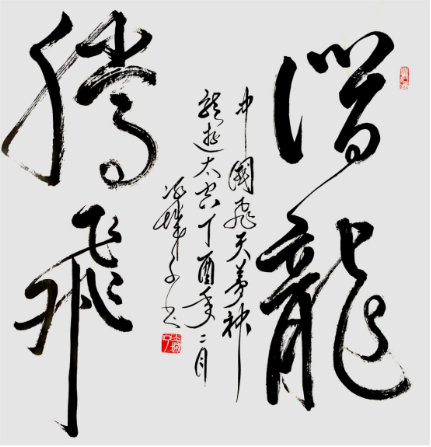 潛龍
騰飛
中國飛天夢神
龍遊太空丁酉年二月